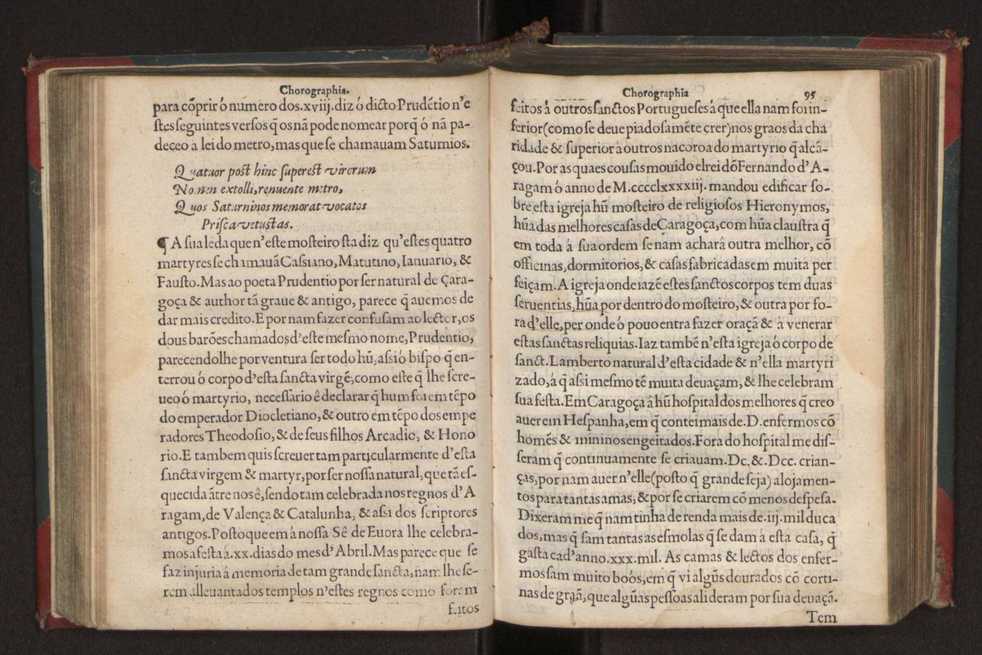 Chorographia.
para cõprir ó numero dos.xviij.diz ó dicto Prudẽtio n'e
stes seguintes versos q̃ os nã pode nomear porq̃ ó nã pa-
deceo a lei do metro, mas que se chamauam Saturnios.
Quatuor post hinc superest virorum
Nomen extolli, renuente metro,
Quos Saturninos memorat vocatos
Prisca vetustas.
¶ A sua leda que n'este mosteiro sta diz qu'estes quatro
martyres se chamauã Cassiano, Matutino, Ianuario, &
Fausto. Mas ao poeta Prudentio por ser natural de Çara-
goça & author tã graue & antigo, parece q̃ auemos de
dar mais credito. E por nam fazer confusam ao lector, os
dous barões chamados d'este mesmo nome, Prudentio,
parecendolhe por ventura ser todo hũ, assi ó bispo q̃ en-
terrou ó corpo d'esta sancta virgẽ, como este q̃ lhe scre-
ueo ó martyrio, necessario ẽ declarar q̃ hum foi em tẽpo
do emperador Diocletiano, & outro em tẽpo dos empe
radores Theodosio, & de seus filhos Arcadio, & Hono
rio. E tambem quis screuer tam particularmente d'esta
sancta virgem & martyr, por ser nossa natural, que tã es-
quecida ãtre nos ẽ, sendo tam celebrada nos regnos d'A
ragam, de Valença & Catalunha, & assi dos scriptores
antigos. Posto que em á nossa Sê de Euora lhe celebra-
mos a festa á .xx. dias do mes d'Abril. Mas parece que se
faz injuria á memoria de tam grande sancta, nam lhe se-
rem alleuantados templos n'estes regnos como forem
feitos
Chorographia 95
feitos á outros sanctos Portugueses á que ella nam foi in-
ferior (como se deue piadosamẽte crer) nos graos da cha
ridade & superior á outros na coroa do martyrio q̃ alcã-
çou. Por as quaes cousas mouido elrei dõ Fernando d'A-
ragam ó anno de M.cccclxxxxiij. mandou edificar so-
bre esta igreja hũ mosteiro de religiosos Hieronymos,
hũa das melhores casas de Çaragoça, com hũa claustra q̃
em toda á sua ordem se nam achará outra melhor, cõ
officinas, dormitorios, & casas fabricadas em muita per
feiçam. A igreja onde iazẽ estes sanctos corpos tem duas
seruentias, hũa por dentro do mosteiro, & outra por fo-
ra d'elle, per onde ó pouo entra fazer oraçã & á venerar
estas sanctas reliquias. Iaz tambẽ n'esta igreja ó corpo de
sanct. Lamberto natural d'esta cidade & n'ella martyri
zado, á q̃ assi mesmo tẽ muita deuaçam, & lhe celebram
sua festa. Em Caragoça á hũ hospital dos melhores q̃ creo
auer em Hespanha, em q̃ contei mais de .D. enfermos cõ
homẽs & mininos engeitados. Fora do hospital me dis-
seram q̃ continuamente se criauam. Dc. &. Dcc. crian-
ças, por nam auer n'elle (posto q̃ grande seja) alojamen-
tos para tantas amas, & por se criarem cõ menos despesa.
Dixeram me q̃ nam tinha de renda mais de .iij. mil duca
dos, mas q̃ sam tantas as esmolas q̃ se dam á esta casa, q̃
gasta cad'anno .xxx. mil. As camas & lectos dos enfer-
mos sam muito boõs, em q̃ vi algũs dourados cõ corti-
nas de grãa, que algũas pessoas ali deram por sua deuaçã.
Tem